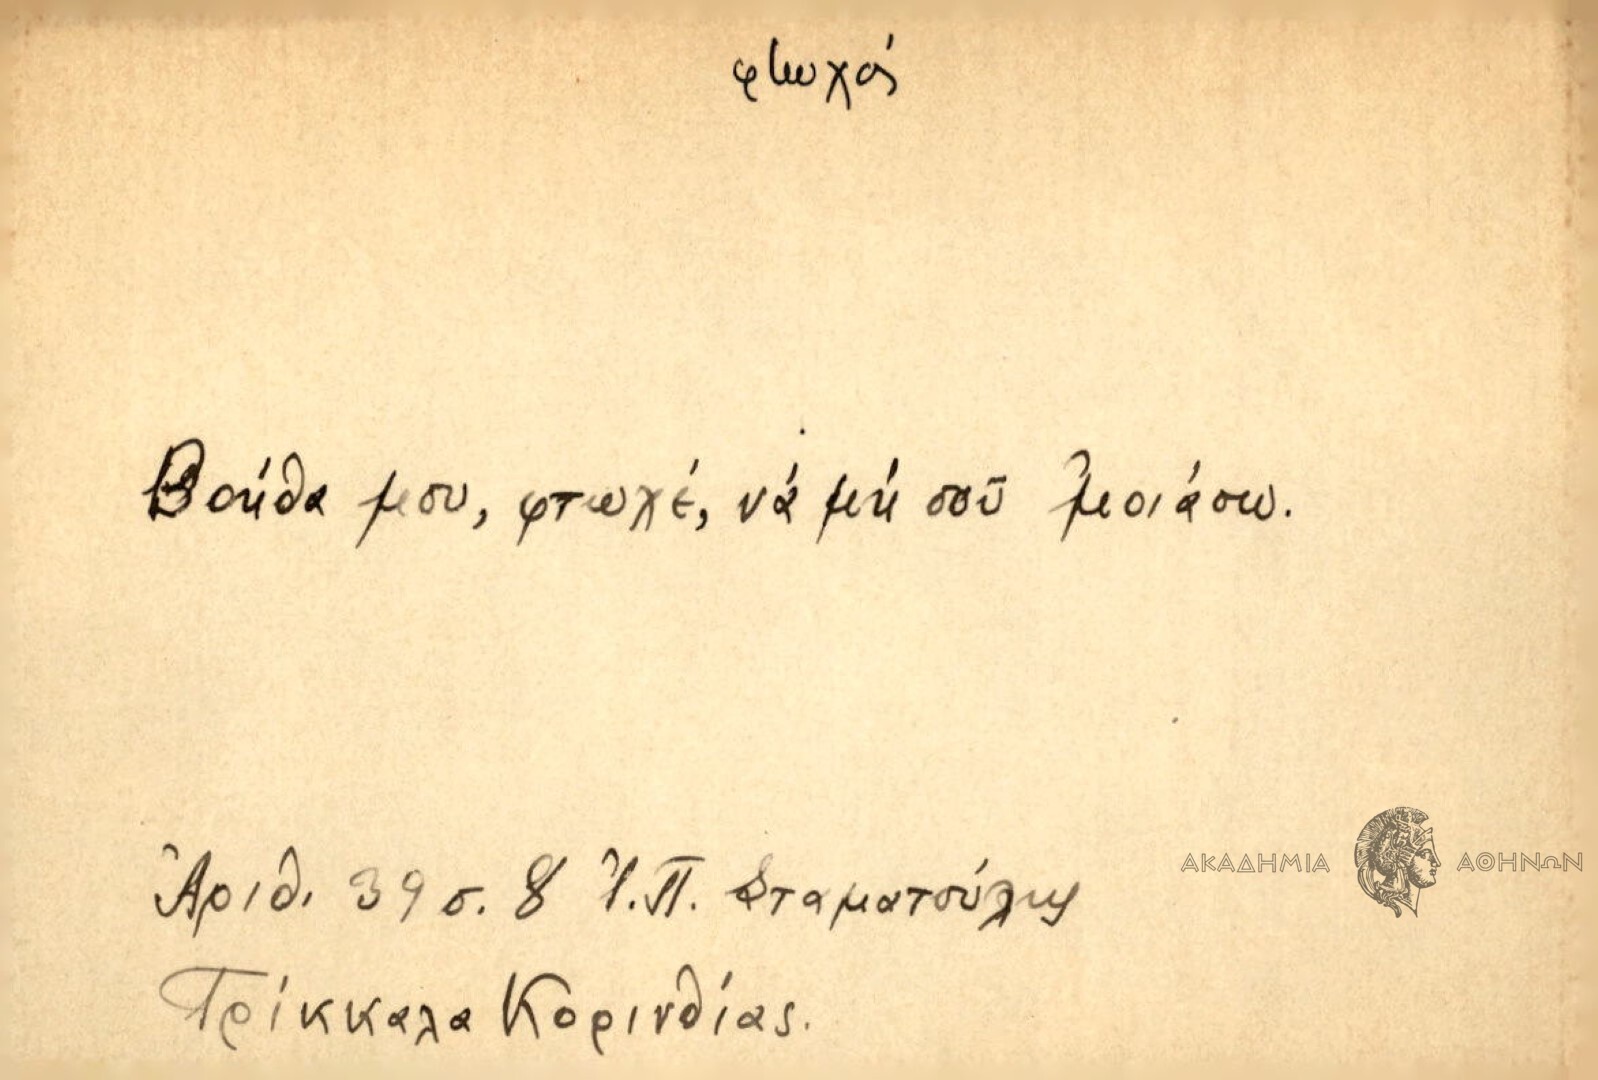 φτωχός
Βοήθα μου, φτωχέ, νά μή σοῦ μοιάσω.
Ἀριθ. 39 σ. 8 Ἰ. Π. Σταματούλης
Τρίκκαλα Κορινθίας.
ΑΚΑΔΗΜΙΑ ΑΘΗΝΩΝ